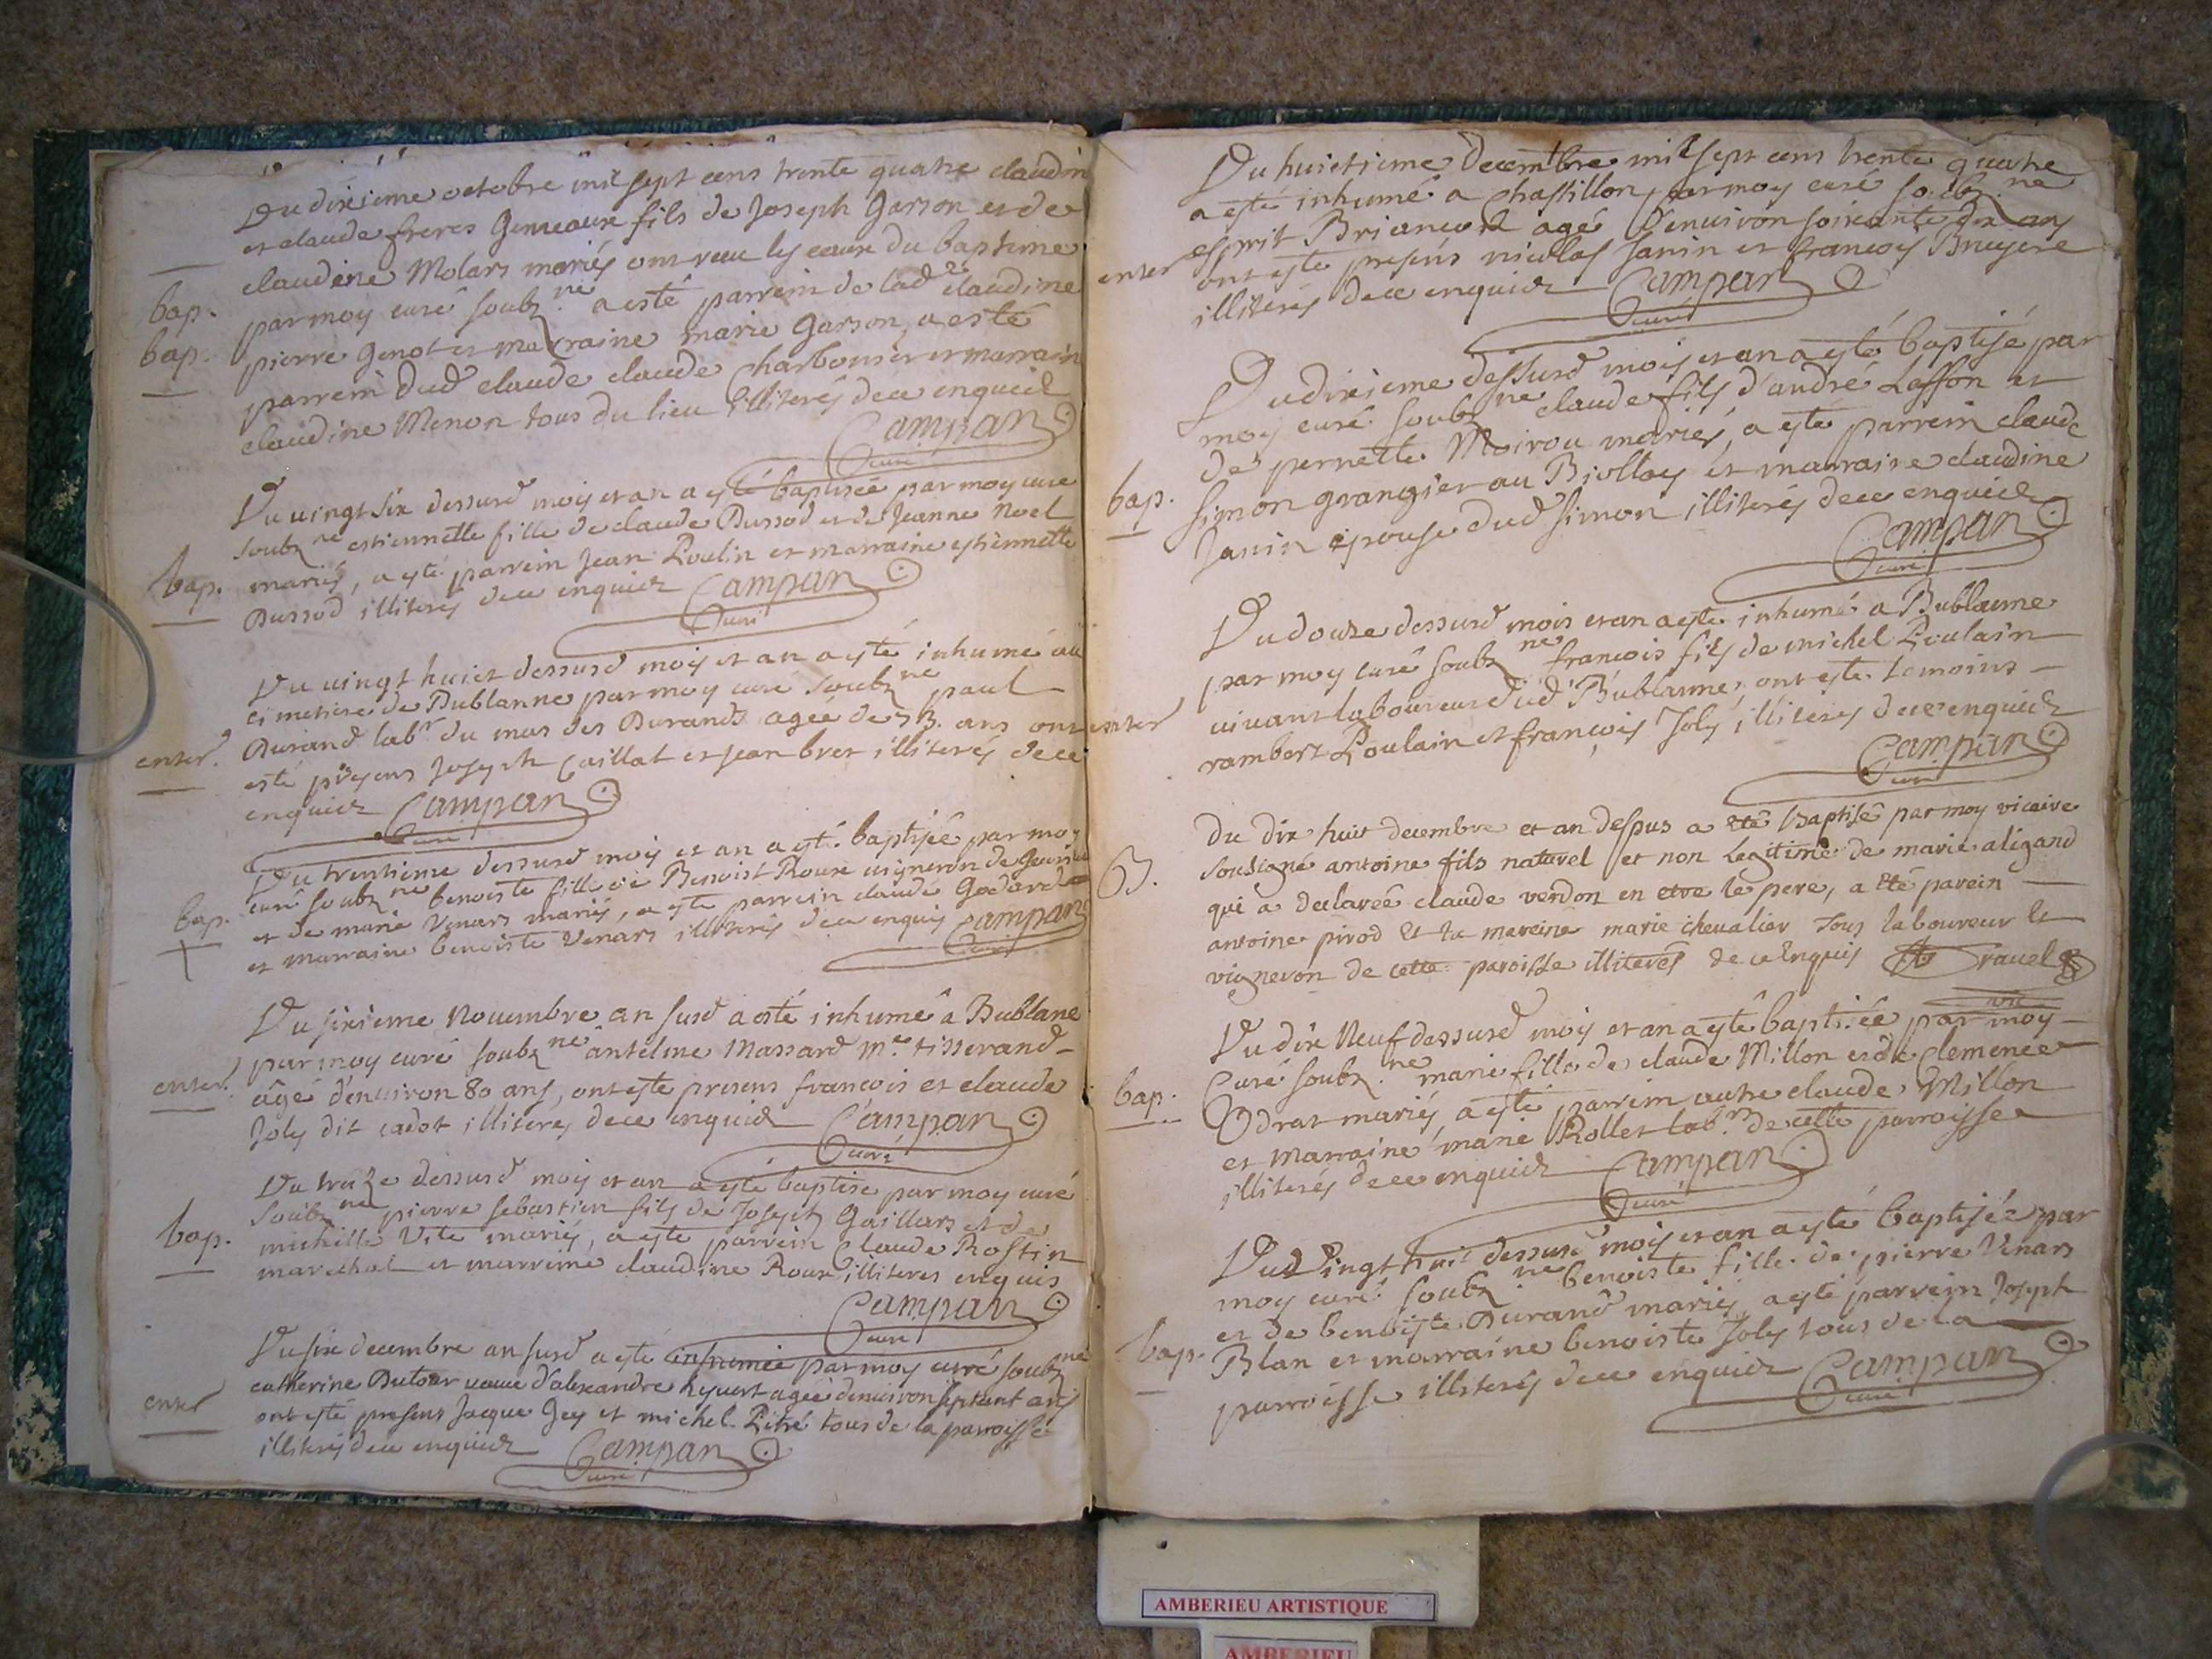 Du dixieme octobre mil sept cens trente quatre claudin
et claude freres Gemeaux fils de Joseph Garson et de
claudine Molars mariés ont receu les eaux du bapteme
bap.
par moy curé soubz.né a esté parrein de lad.te claudine
bap.
pierre Genot et marraine marie Garson, a esté
parrein dud claude claude Charbonier et marrain
claudine Menon tous du lieu illiterés de ce enqueil
Campan
curé
Du vingt six dessusd moys et an a esté baptisée par moy curé
soubz.né estiennette fille de claude Dussod et de Jeanne Noel
bap. mariés, a esté parrein Jean Poulin et marraine estiennette
Dussod illiterés de ce enquis Campan
curé
Du vingt huict dessusd moys et an a esté inhumé au
cimetiere de Bublanne par moy curé soubz.né paul
Durand labr du mas des Durands agée de 73. ans ont
enter.
esté presens Joseph Caillat et Jean bret illiterés de ce
enquis Campan
curé
Du trentieme dessusd moys et an a esté baptisée par moy
curé soubz.né benoiste fille de Benoist Roux vigneron de
bap. et de marie Venars mariés, a esté parrein claude Godard
et marraine benoiste Venars illiterés de ce enquis Campan
curé
Du sixieme Novembre an susd a esté inhumé a Bublane
par moy curé soubz.né antelme Massard m.e tisserand
enter.
âgé d'environ 80 ans, ont esté presens francois et claude
Joly dit cadot illiterés de ce enquis Campan
curé
Du treize dessusd moys et an a esté baptisé par moy curé
soubz.né pierre sebastien fils de Joseph Gaillars et de
bap.
michelle Vite mariés, a esté parrein Claude Rostin
marechal et marreine claudine Roux illiterés enquis
Campan
curé
Du six decembre an susd a esté inhumée par moy curé soubz.né
catherine Dutour veuve d'alexandre hyvert agée denviron septant ans
enter
ont esté presens Jacque Gey et michel Pitré tous de la parroisse
illiterés de ce enquis Campan
curé
Du huictieme Decembre mil sept cens trente quatre
a esté inhumé a Chastillon par moy curé soubz.né
esprit Briancord agé D'environ soixante dix ans
enter
ont esté presens nicolas Janin et francoys Bruyere
illiterés de ce enquis Campan
curé
Du dixieme dessusd moys et an a esté baptisé par
moy curé soubz.né claude fils d'andré Laffon et
de pernette Moirou mariés, a esté parrein claude
bap.
Simon grangier au Biolley et marraine claudine
Janin epouse dud Simon illiterés de ce enquis
Campan
curé
Du douze dessusd mois et an a esté inhumé a Bublanne
par moy curé soubz.né francois fils de michel Poulain
vivant laboureur dud Bublanne, ont esté temoins
enter
rambert Poulain et françois Joly illiterés de ce enquis
Campan
curé
Du dix huit decembre et an dessus a eté baptisé par moy vicaire
B.
sousigné antoine fils naturel et non legitime de marie aligand
qui a declareé claude verdon en etre le pere, a eté parein
antoine pirod et la mareine marie chevalier Tous laboureur et
vigneron de cette paroisse illiterés de ce Enquis Travel
vic
Du dix Neuf dessusd moys et an a esté baptisée par moy
Curé soubz.né marie fille de claude Millon et de Clemence
bap.
Odrat mariés a esté parrein autre claude Millon
et marraine marie Rollet lab.r de cette parroisse
illiterés de ce enquis Campan
curé
Du Vingt huit dessusd moys et an a esté baptisée par
moy curé soubz.né benoiste fille de pierre Venars
et de benoiste Durand mariés, a esté parrein Joseph
bap.
Blan et marraine benoiste Joly tous de la
parroisse illiterés de ce enquis Campan
curé
AMBERIEU ARTISTIQUE
AMBERIEU